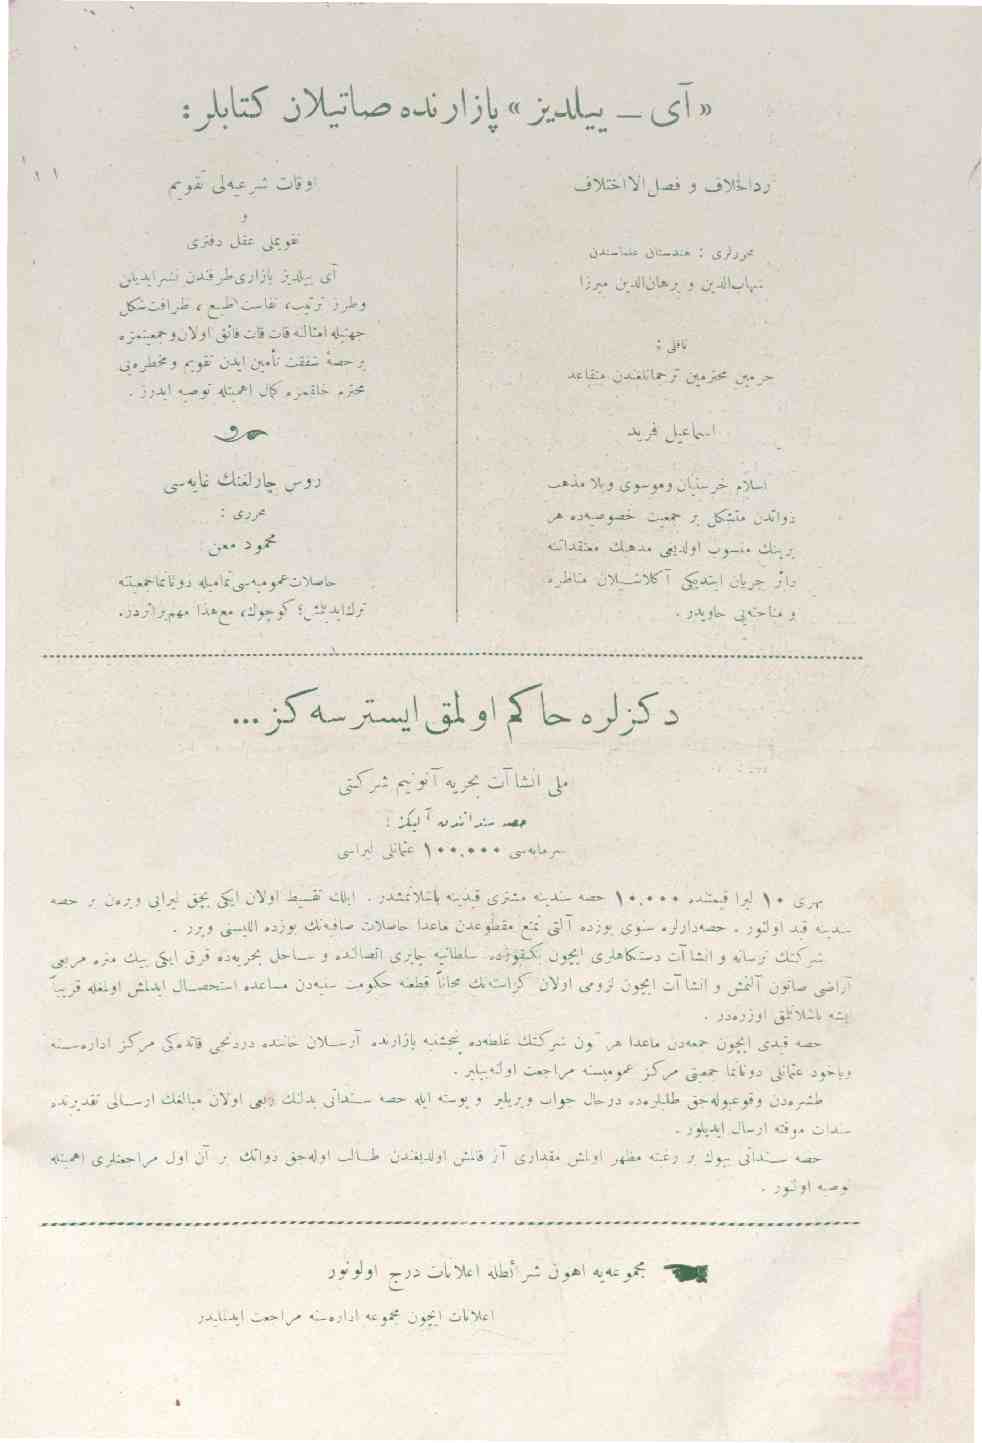 «آی ــ ییلدیز» پازارنده صاتیلان کتابلر :
ردالخلاف و فصل‌الااختلاف
محررلری : هندستان علماسندن
شهاب‌الدین و برهان‌الدین میرزا
ناقلی :
حرمین محترمین ترجمانلغندن متقاعد
اسماعیل فرید
اسلام خرستیان وموسوی وبلا مذهب
ذواتدن متشکل بر جمعیت خصوصیه‌ده هر
برینك منسوب اولدیغی مذهبك معتقداتنه
دائر جریان ایتدیکی آکلاشیلان مناظره
و مباحثه‌یی حاویدر .
اوقات شرعیه‌لی تقویم
و
تقویملی عقل دفتری
آی ییلدیز پازاری طرفندن نشر ایدیلن
وطرز ترتیب، نفاست طبع ، ظرافت شکل
جهتیله امثالنه قات قات فائق اولان و جمعیتمزه
بر حصهٔ شفقت تأمین ایدن تقویم و مخطره‌یی
محترم خلقمزه کمال اهمیتله توصیه ایدرز .
روس چارلغنك غایه‌سی
محرری :
محمود معن
حاصلات عمومیه‌سی تمامیله دونانما جمعیتنه
ترك ایدیلمش ؛ کوچوك، مع‌هذا مهم بر اثردر.
دکزلره حاکم اولمق ایسترسه‌کز ...
ملی انشاآت بحریه آنونیم شرکتی
حصه سنداتندن آلیکز !
سرمایه‌سی ۱۰۰,۰۰۰ عثمانلی لیراسی
بهری ۱۰ لیرا قیمتنده ۱۰,۰۰۰ حصه سندینه مشتری قیدینه باشلانمشدر . ایلك تقسیط اولان ایکی بچق لیرایی ویره‌ن بر حصه
سندینه قید اولنور . حصه‌دارلره سنوی یوزده آلتی تمتع مقطوعدن ماعدا حاصلات صافیه‌نك یوزده اللیسی ویرر .
شرکتك ترسانه و انشاآت دستکاهلری ایچون سلطانیه چایری اتصالنده و ساحل بحریه‌ده قرق ایکی بیك متره مربعی
آراضی صاتون آلنمش و انشاآت ایچون لزومی اولان کراسته‌نك مجاناً قطعنه حکومت سنیه‌دن مساعده استحصال ایدلمش اولمغله قریباً
ایشه باشلانلمق اوزره‌در .
حصه قیدی ایچون جمعه‌دن ماعدا هر کون شرکتك غلطه‌ده پنجشنبه بازارنده آرسلان خاننده دردنجی قاتده‌کی مرکز اداره‌سنه
ویاخود عثمانلی دونانما جمعیتی مرکز عمومیسنه مراجعت اولنه‌بیلیر .
طشره‌دن وقوعبوله‌جق طلبلره‌ده درحال جواب ویریلیر و پوسته ایله حصه سنداتی بدلنك دفعی اولان مبالغك ارسالی تقدیرنده
سندات موقته ارسال ایدیلور .
حصه سنداتی بیوك بر رغبته مظهر اولمش مقداری آز قالمش اولدیغندن طالب اوله‌جق ذواتك بر آن اول مراجعتلری اهمیتله
توصیه اولنور .
مجموعه‌یه اهون شرائطله اعلانات درج اولونور
اعلانات ایچون مجموعه اداره‌سنه مراجعت ایدلملیدر